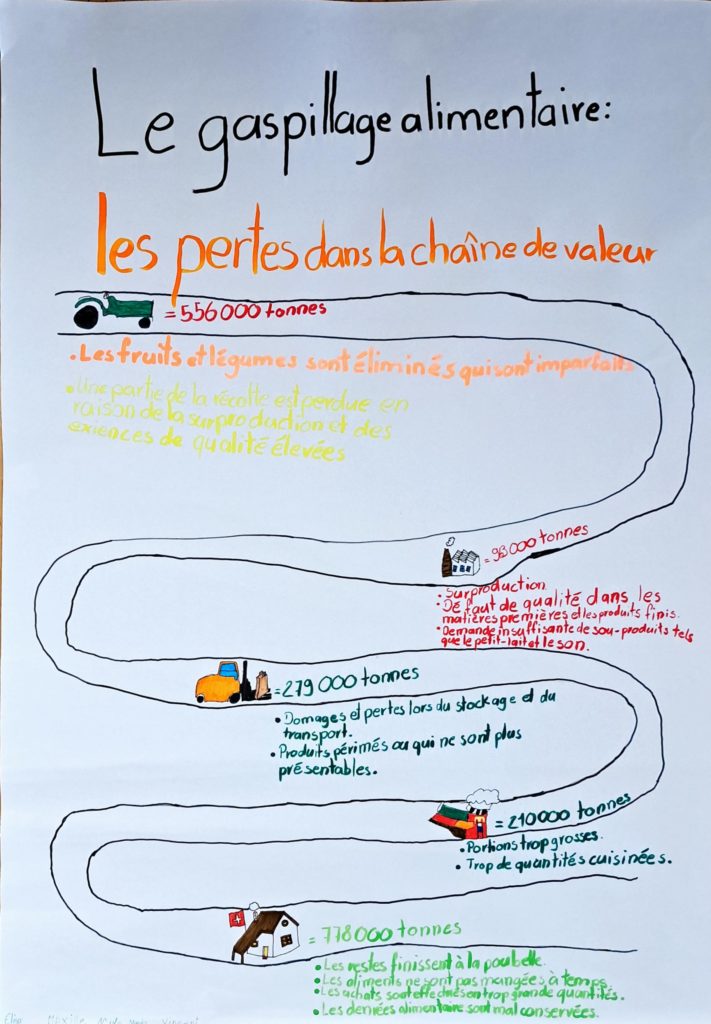 Le gaspillage alimentaire:
les pertes dans la chaîne de valeur
= 556 000 tonnes
• Les fruits et légumes sont éliminés qui sont imparfaits
• Une partie de la récolte est perdue en
raison de la surproduction et des
exiences de qualité élevées
= 98 000 tonnes
• Surproduction
• Défaut de qualité dans les
matières premières et les produits finis.
• Demande insuffisante de sou-produits tels
que le petit-lait et le son.
= 279 000 tonnes
• Domages et pertes lors du stockage et du
transport.
• Produits périmés ou qui ne sont plus
présentables.
= 210 000 tonnes
• Portions trop grosses.
• Trop de quantités cuisinées.
= 778 000 tonnes
• Les restes finissent à la poubelle.
• Les aliments ne sont pas mangées à temps
• Les achats sont effectués en trop grande quantités.
• Les denrées alimentaire sont mal conservées.